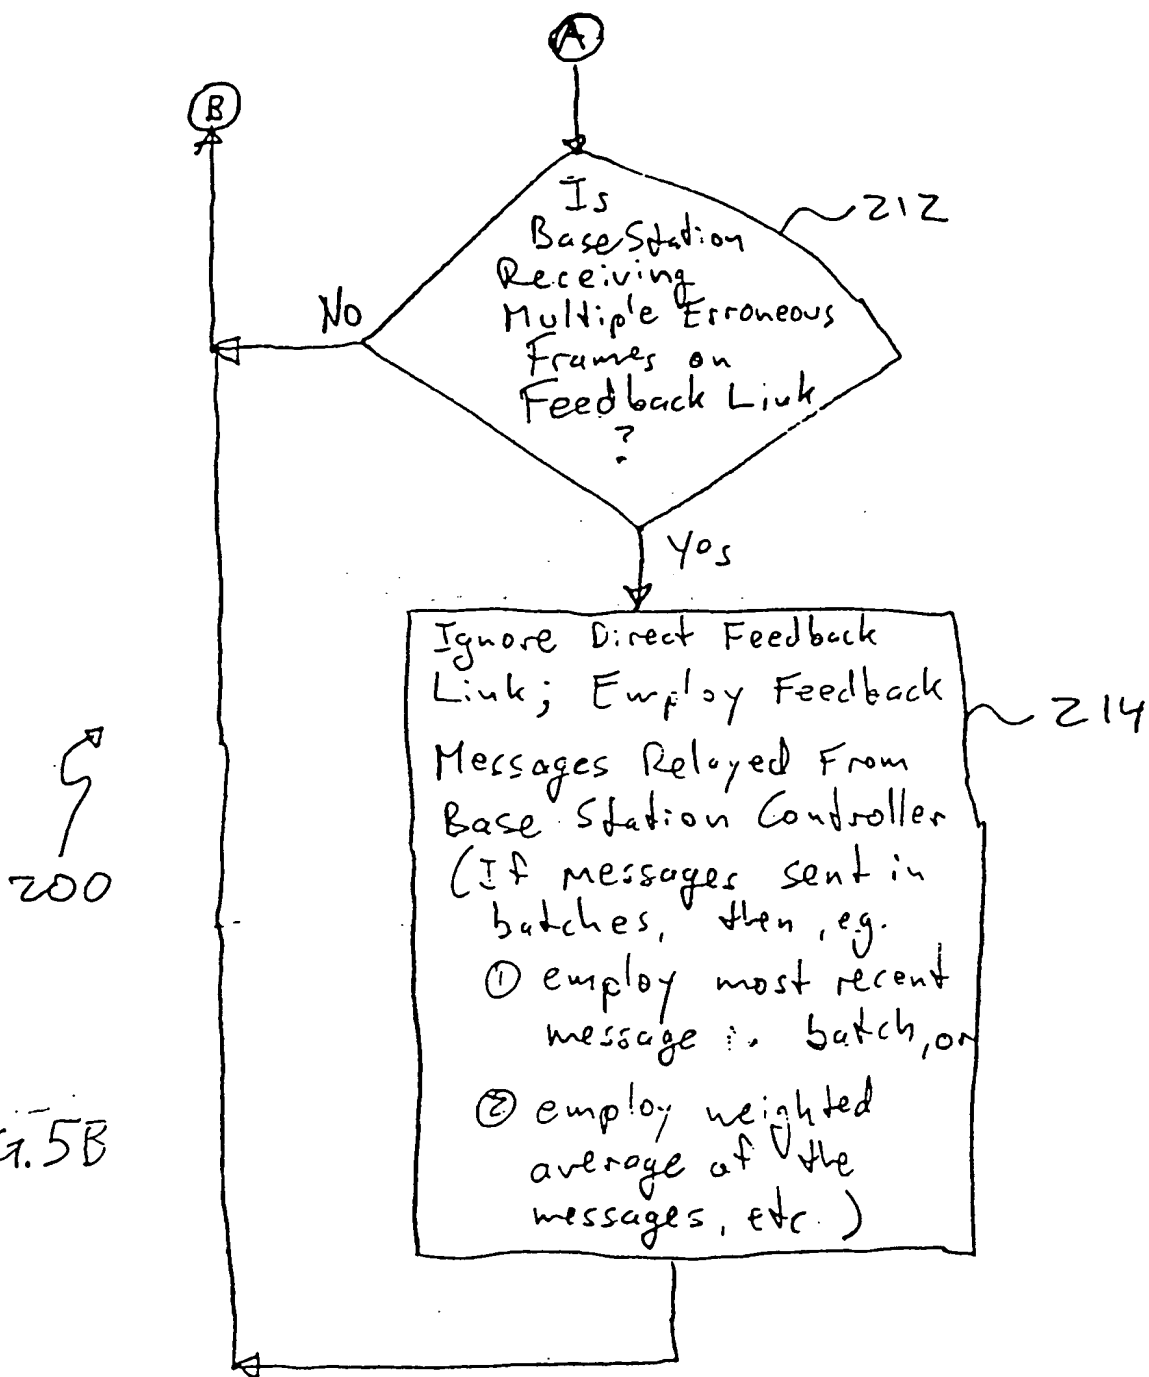 A
B
Is
Base Station
Receiving
Multiple Erroneous
Frames on
Feedback Link
?
212
No
Yes
Ignore Direct Feedback
Link; Employ Feedback
Messages Relayed From
Base Station Controller
(If messages sent in
batches, then, e.g.
① employ most recent
message in batch, or
② employ weighted
average of the
messages, etc.)
214
200
G.5B